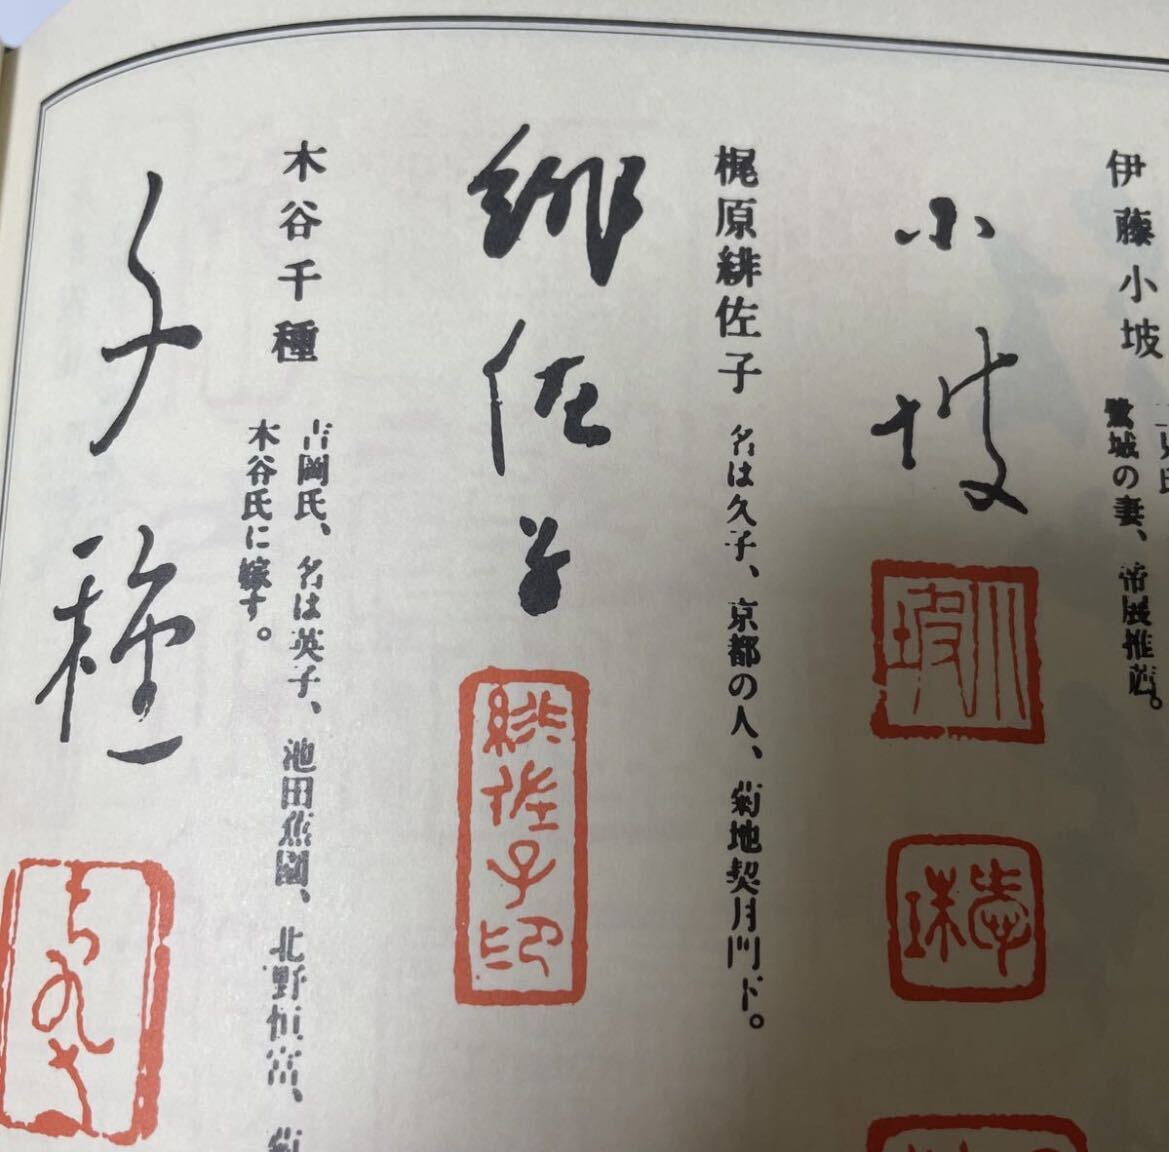 伊藤小坡
鷺城の妻、帝展推薦。
小坡
小坡
梶原緋佐子
名は久子、京都の人、菊地契月門下。
緋佐子
緋佐子印
木谷千種
吉岡氏、名は英子、池田蕉園、北野恒富、菊
木谷氏に嫁す。
千種
ちくさ